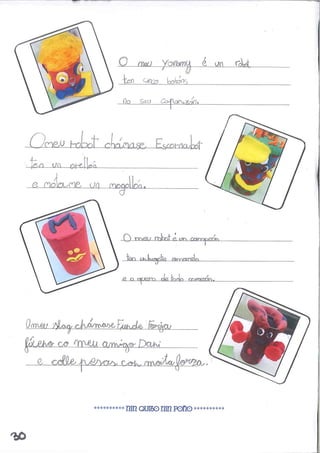 O meu Yommy é un robot
ten uns botóns
no seu caparazón.
O meu robot chámase Escornabot
ten un orellós
e mola-me un mogollón.
O meu robot é un campeón
ten un bigote amarelo
e o quero de todo corazón.
O meu
chámase
co meu amigo Dani
e colle pesas con moita forza.
********** NIN QUITO NIN POÑO **********
30